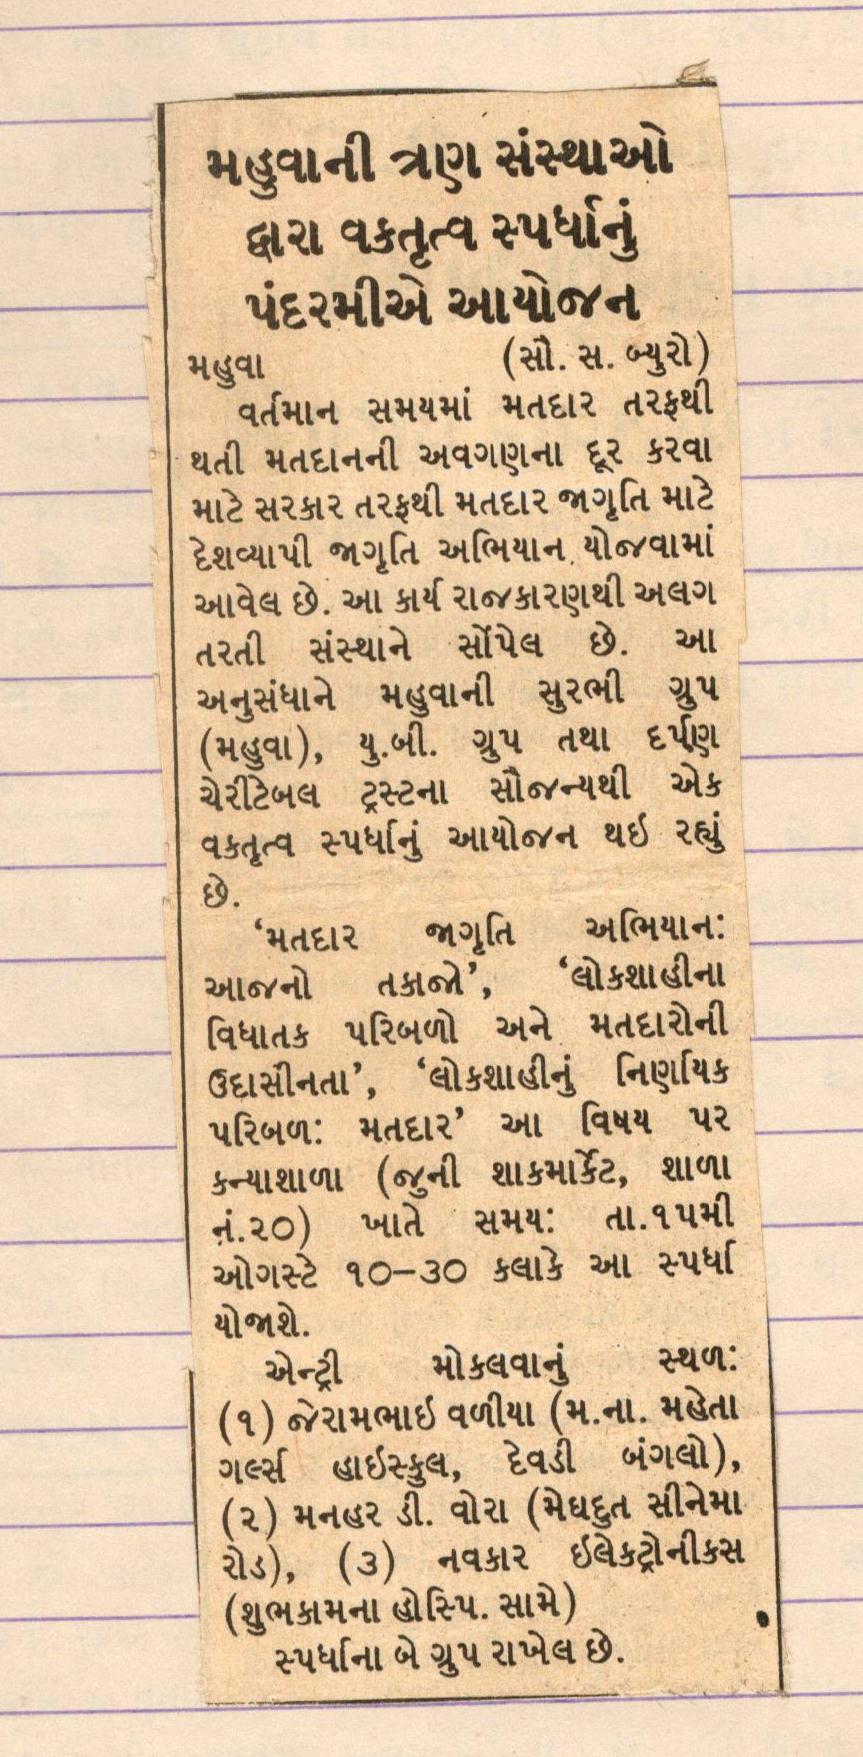 મહુવાની ત્રણ સંસ્થાઓ
દ્વારા વકતૃત્વ સ્પર્ધાનું
પંદરમીએ આયોજન
મહુવા (સૌ. સ. બ્યુરો)
વર્તમાન સમયમાં મતદાર તરફથી
થતી મતદાનની અવગણના દૂર કરવા
માટે સરકાર તરફથી મતદાર જાગૃતિ માટે
દેશવ્યાપી જાગૃતિ અભિયાન યોજવામાં
આવેલ છે. આ કાર્ય રાજકારણથી અલગ
તરતી સંસ્થાને સોંપેલ છે. આ
અનુસંધાને મહુવાની સુરભી ગ્રુપ
(મહુવા), યુ.બી. ગ્રુપ તથા દર્પણ
ચેરીટેબલ ટ્રસ્ટના સૌજન્યથી એક
વકતૃત્વ સ્પર્ધાનું આયોજન થઇ રહ્યું
છે.
‘મતદાર જાગૃતિ અભિયાન:
આજનો તકાજો’, ‘લોકશાહીના
વિધાતક પરિબળો અને મતદારોની
ઉદાસીનતા’, ‘લોકશાહીનું નિર્ણાયક
પરિબળ: મતદાર’ આ વિષય પર
કન્યાશાળા (જુની શાકમાર્કેટ, શાળા
નં.૨૦) ખાતે સમય: તા.૧૫મી
ઓગસ્ટે ૧૦-૩૦ કલાકે આ સ્પર્ધા
યોજાશે.
એન્ટ્રી મોકલવાનું સ્થળ:
(૧) જેરામભાઇ વળીયા (મ.ના. મહેતા
ગર્લ્સ હાઇસ્કુલ, દેવડી બંગલો),
(૨) મનહર ડી. વોરા (મેઘદુત સીનેમા
રોડ), (૩) નવકાર ઇલેકટ્રોનીકસ
(શુભકામના હોસ્પિ. સામે)
સ્પર્ધાના બે ગ્રુપ રાખેલ છે.